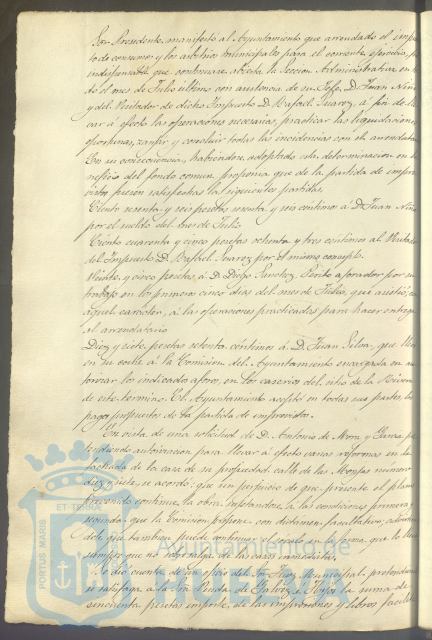 Sor. Presidente, manifestó al Ayuntamiento que arrendado el impues
to de consumos y los arbitrios municipales para el corriente ejercicio,
indispensable que continuase abierta la Sección Administrativa en to
do el mes de Julio último con asistencia de su Jefe, D. Juan Niño
y del Visitador de dicho Impuesto D. Rafael Suarez, á fin de lle
var á efecto las operaciones necesarias, practicar las liquidaciones
oportunas, zanjar y concluir todas las incidencias con el arrendata
En su consecuencia, habiéndose adoptado esta determinación en be
neficio del fondo común, proponía que de la partida de impre
vistos fuesen satisfechas las siguientes partidas.
Ciento sesenta y seis pesetas sesenta y seis céntimos á D. Juan Niño
por el sueldo del mes de Julio.
Ciento cuarenta y cinco pesetas ochenta y tres céntimos al Visitador
del Impuesto D. Rafael Suarez por el mismo concepto.
Veinte y cinco pesetas, á D. Diego Sanchez, Perito aforador por su
trabajo en los primeros cinco días del mes de Julio, que asistió, con
aquel carácter, á las operaciones practicadas para hacer entrega
al arrendatario
Diez y siete pesetas setenta céntimos á D. Juan Silva, que llevó
en su coche á la Comisión del Ayuntamiento encargada en au
torizar los indicados aforos, en los caserios del sitio de la Rivera
de este término. El Ayuntamiento aceptó en todas sus partes, los
pagos propuestos de la partida de imprevistos.
En vista de una solicitud de D. Antonio de Mora y Garcia pre
tendiendo autorización para llevar á efecto varias reformas en la
fachada de la casa de su propiedad calle de las Monjas número
diez y siete, se acordó: que sin perjuicio de que presente el plano
prevenido continúe la obra, sujetándose á las condiciones primera y
segunda que la Comisión propone con dictamen facultativo, advirtién
dole que también puede continuar el zócalo en la forma que lo lleva
siempre que no sobresalga de las casas inmediatas.
Se dió cuenta de un oficio del Sor. Juez Municipal pretendiendo
se satisfaga á la Sra. Viuda de Galvez é Hijos la suma de
cincuenta pesetas importe de las impresiones y libros facilita
PORTUS MARIS
ET TERRAE
Ayuntamiento de
HUELVA